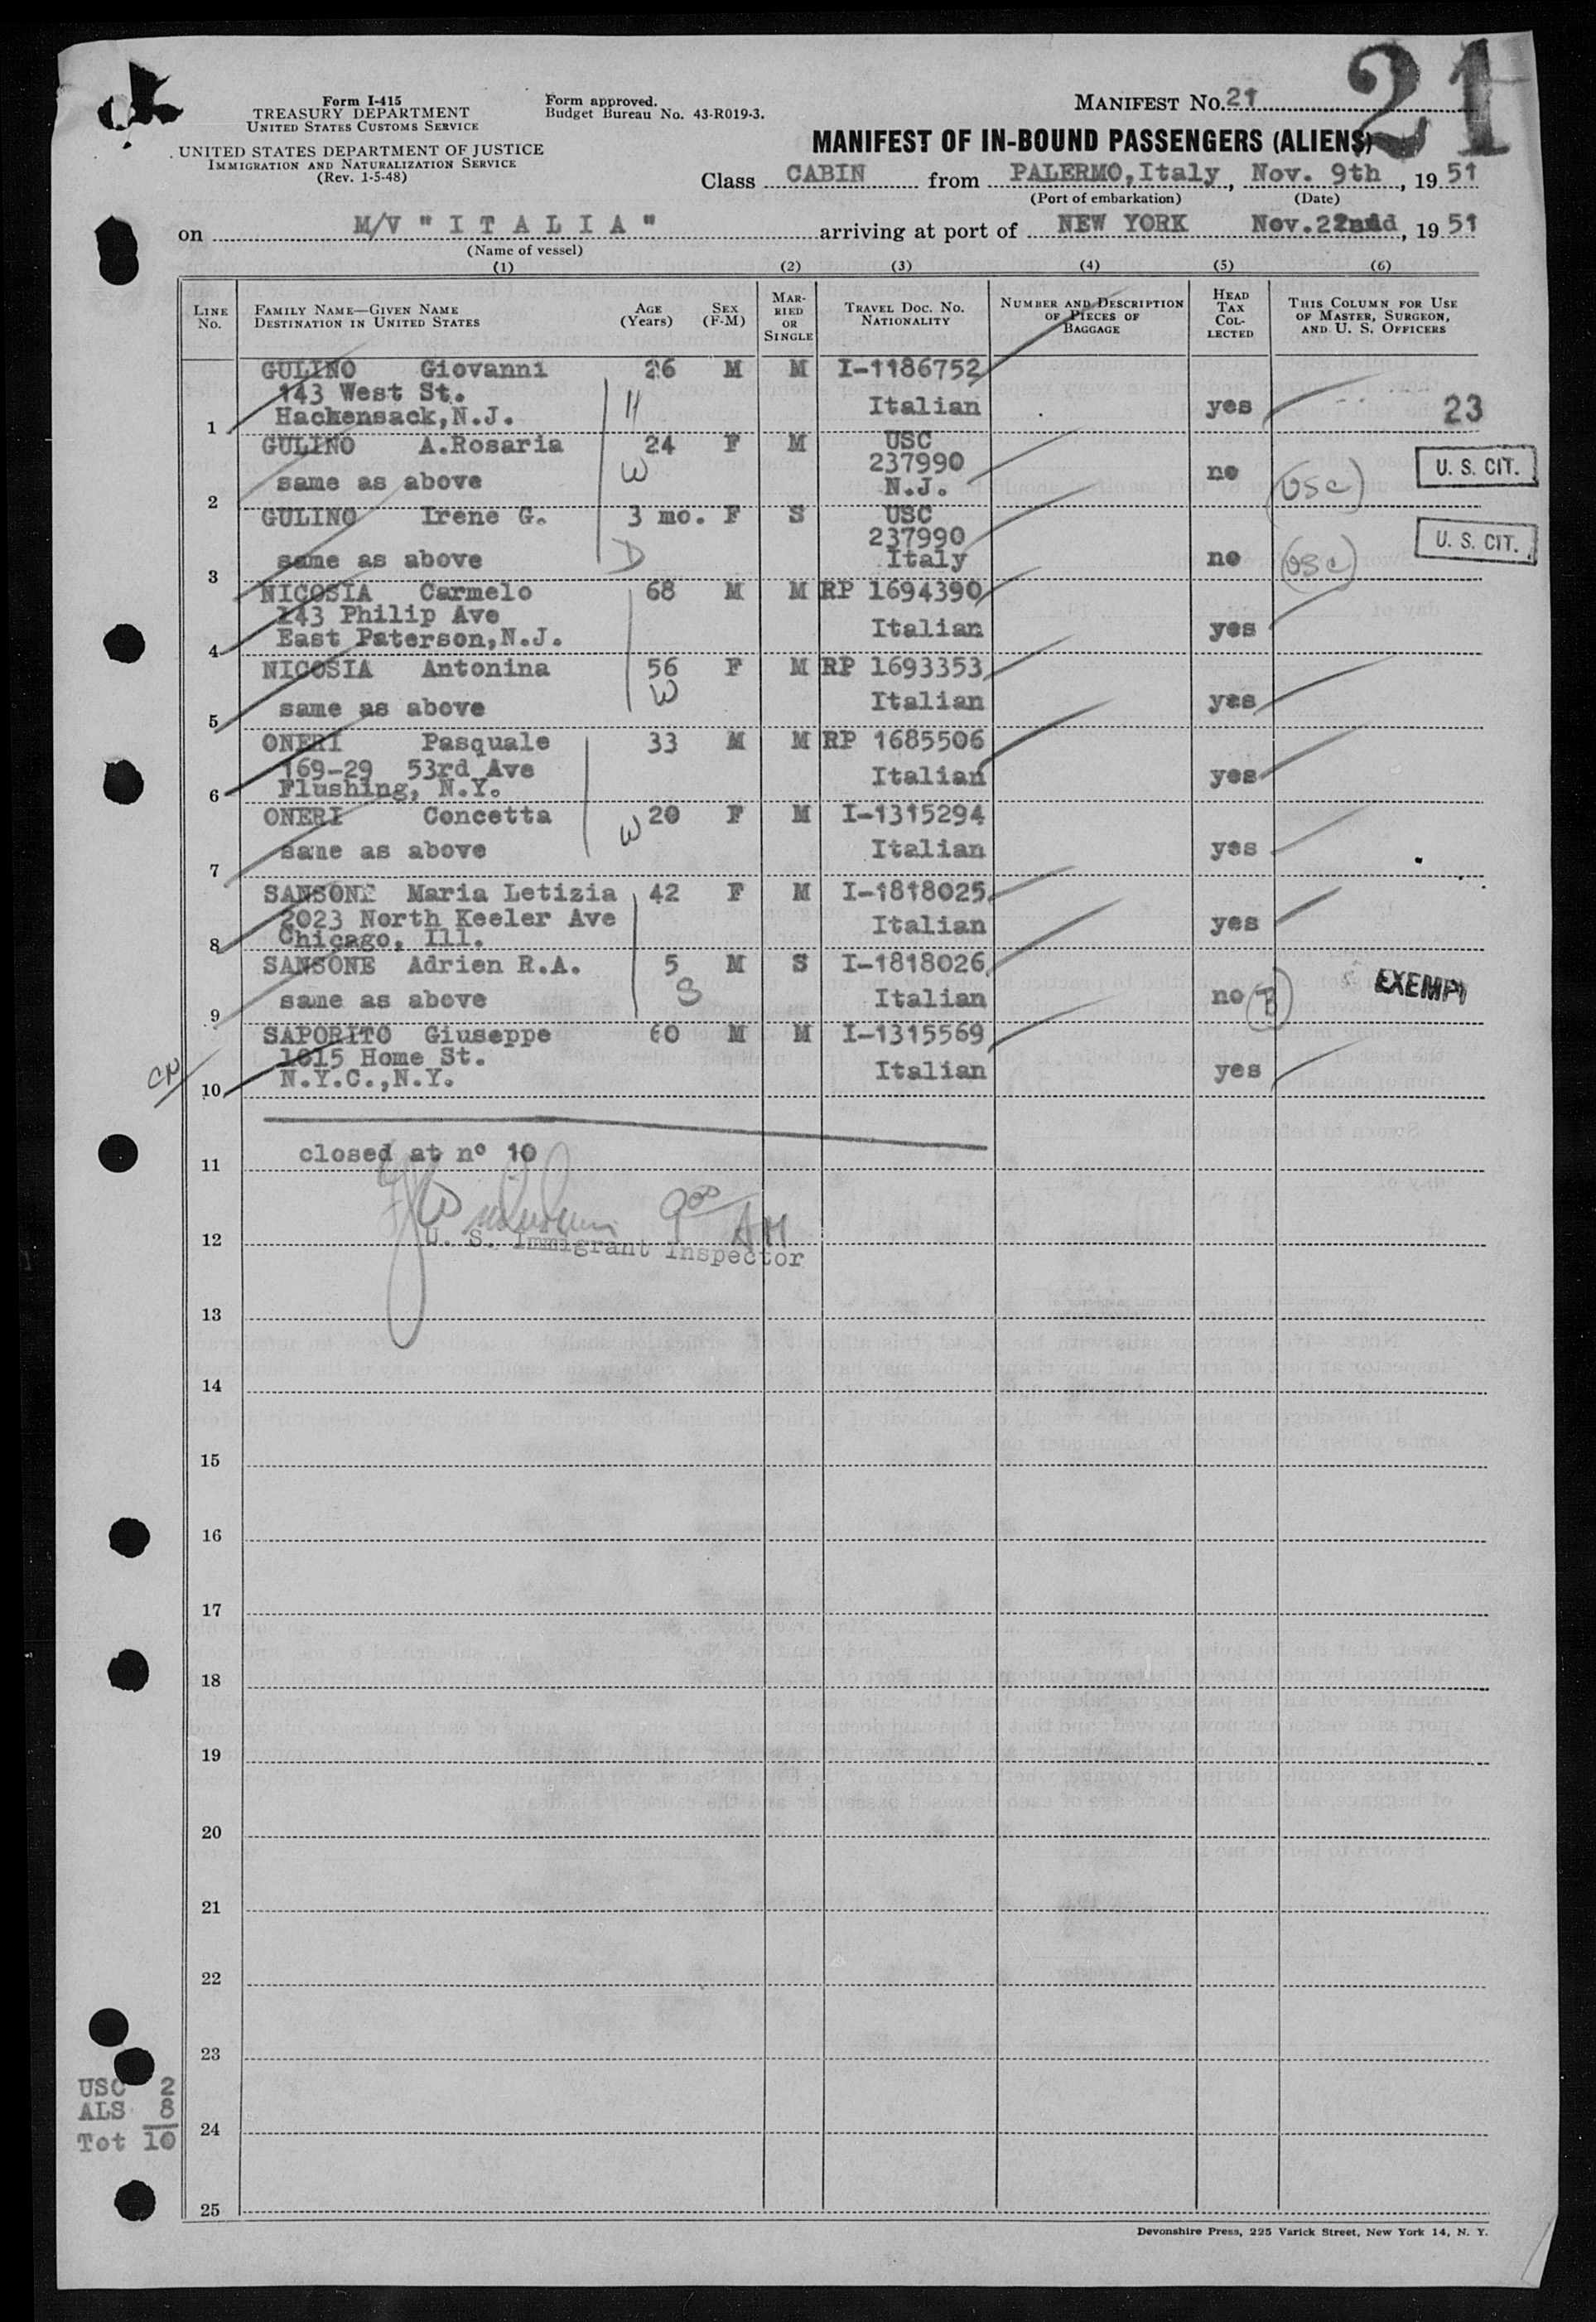 21
Form I-415
TREASURY DEPARTMENT
UNITED STATES CUSTOMS SERVICE
UNITED STATES DEPARTMENT OF JUSTICE
IMMIGRATION AND NATURALIZATION SERVICE
(Rev. 1-5-48)
Form approved.
Budget Bureau No. 43-R019-3.
MANIFEST No. 21
MANIFEST OF IN-BOUND PASSENGERS (ALIENS)
Class CABIN from PALERMO, Italy, Nov. 9th, 1951
(Port of embarkation) (Date)
on M/V " I T A L I A " arriving at port of NEW YORK Nov. 22nd, 1951
(Name of vessel)
(1) (2) (3) (4) (5) (6)
LINE No. FAMILY NAME—GIVEN NAME DESTINATION IN UNITED STATES AGE (Years) SEX (F-M) MARRIED OR SINGLE TRAVEL DOC. NO. NATIONALITY NUMBER AND DESCRIPTION OF PIECES OF BAGGAGE HEAD TAX COLLECTED THIS COLUMN FOR USE OF MASTER, SURGEON, AND U. S. OFFICERS
GULINO Giovanni 26 M M I-1186752
143 West St. H Italian yes 23
1 Hackensack, N.J.
GULINO A.Rosaria 24 F M USC
W 237990 no (USC) U. S. CIT.
same as above N.J.
2
GULINO Irene G. 3 mo. F S USC
237990 U. S. CIT.
same as above D Italy no (USC)
3
NICOSIA Carmelo 68 M M RP 1694390
143 Philip Ave Italian yes
4 East Paterson, N.J.
NICOSIA Antonina 56 F M RP 1693353
W
same as above Italian yes
5
ONERI Pasquale 33 M M RP 1685506
169-29 53rd Ave Italian yes
6 Flushing, N.Y.
ONERI Concetta W 20 F M I-1315294
same as above Italian yes
7
SANSONE Maria Letizia 42 F M I-1818025
2023 North Keeler Ave Italian yes
8 Chicago, Ill.
SANSONE Adrien R.A. 5 M S I-1818026
same as above S Italian no EXEMPT
9
SAPORITO Giuseppe 60 M M I-1315569
1015 Home St. Italian yes
CN 10 N.Y.C.,N.Y.
11 closed at n° 10
9 00 AM
12 U. S. Immigrant Inspector
13
14
15
16
17
18
19
20
21
22
23
USC 2
ALS 8
24
Tot 10
25
Devonshire Press, 225 Varick Street, New York 14, N. Y.